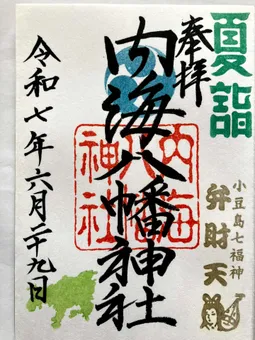 夏詣
奉拝
内海八幡神社
内海
八幡
神社
小豆島七福神
弁財天
令和七年六月二十九日